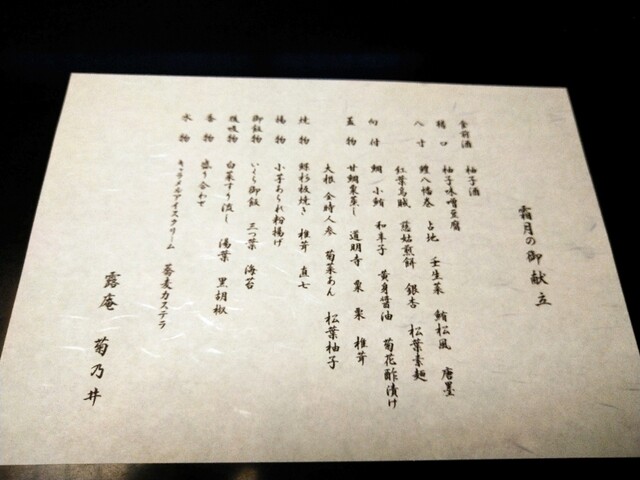 霜月の御献立
食前酒 柚子酒
猪口 柚子味噌豆腐
八寸 鱧八幡巻 占地 壬生菜 鮪松風 唐墨
紅葉烏賊 慈姑煎餅 銀杏 松葉素麺
向付 鯛 小鮪 和辛子 黄身醤油 菊花酢漬け
蓋物 甘鯛栗蒸し 道明寺 栗 栗 椎茸
大根 金時人参 菊菜あん 松葉柚子
焼物 鰆杉板焼き 椎茸 直七
揚物 小芋あられ粉揚げ
御飯物 いくら御飯 三つ葉 海苔
後吸物 白菜すり流し 湯葉 黒胡椒
香物 盛り合わせ
水物 キャラメルアイスクリーム 蕎麦カステラ
露庵 菊乃井